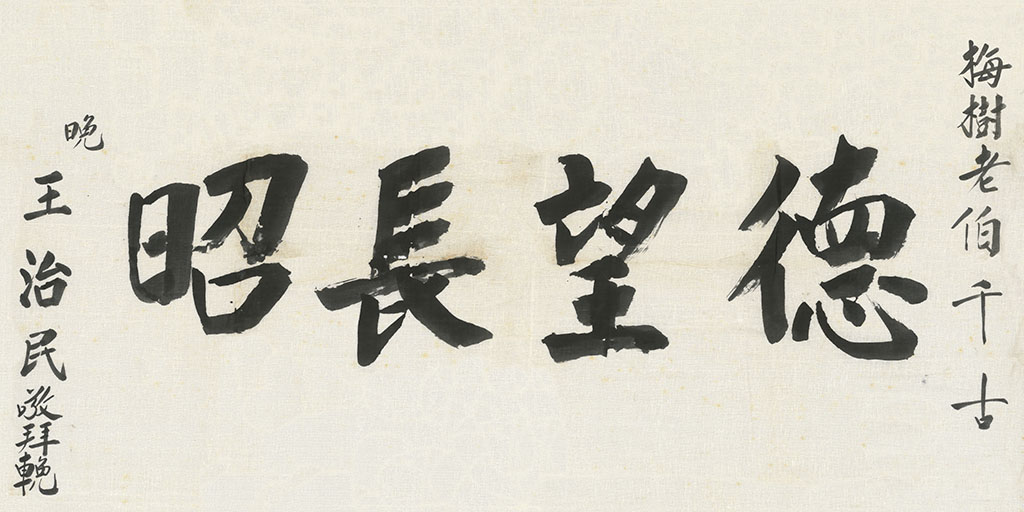 梅樹老伯千古
德望長昭
晚
王治民敬拜輓